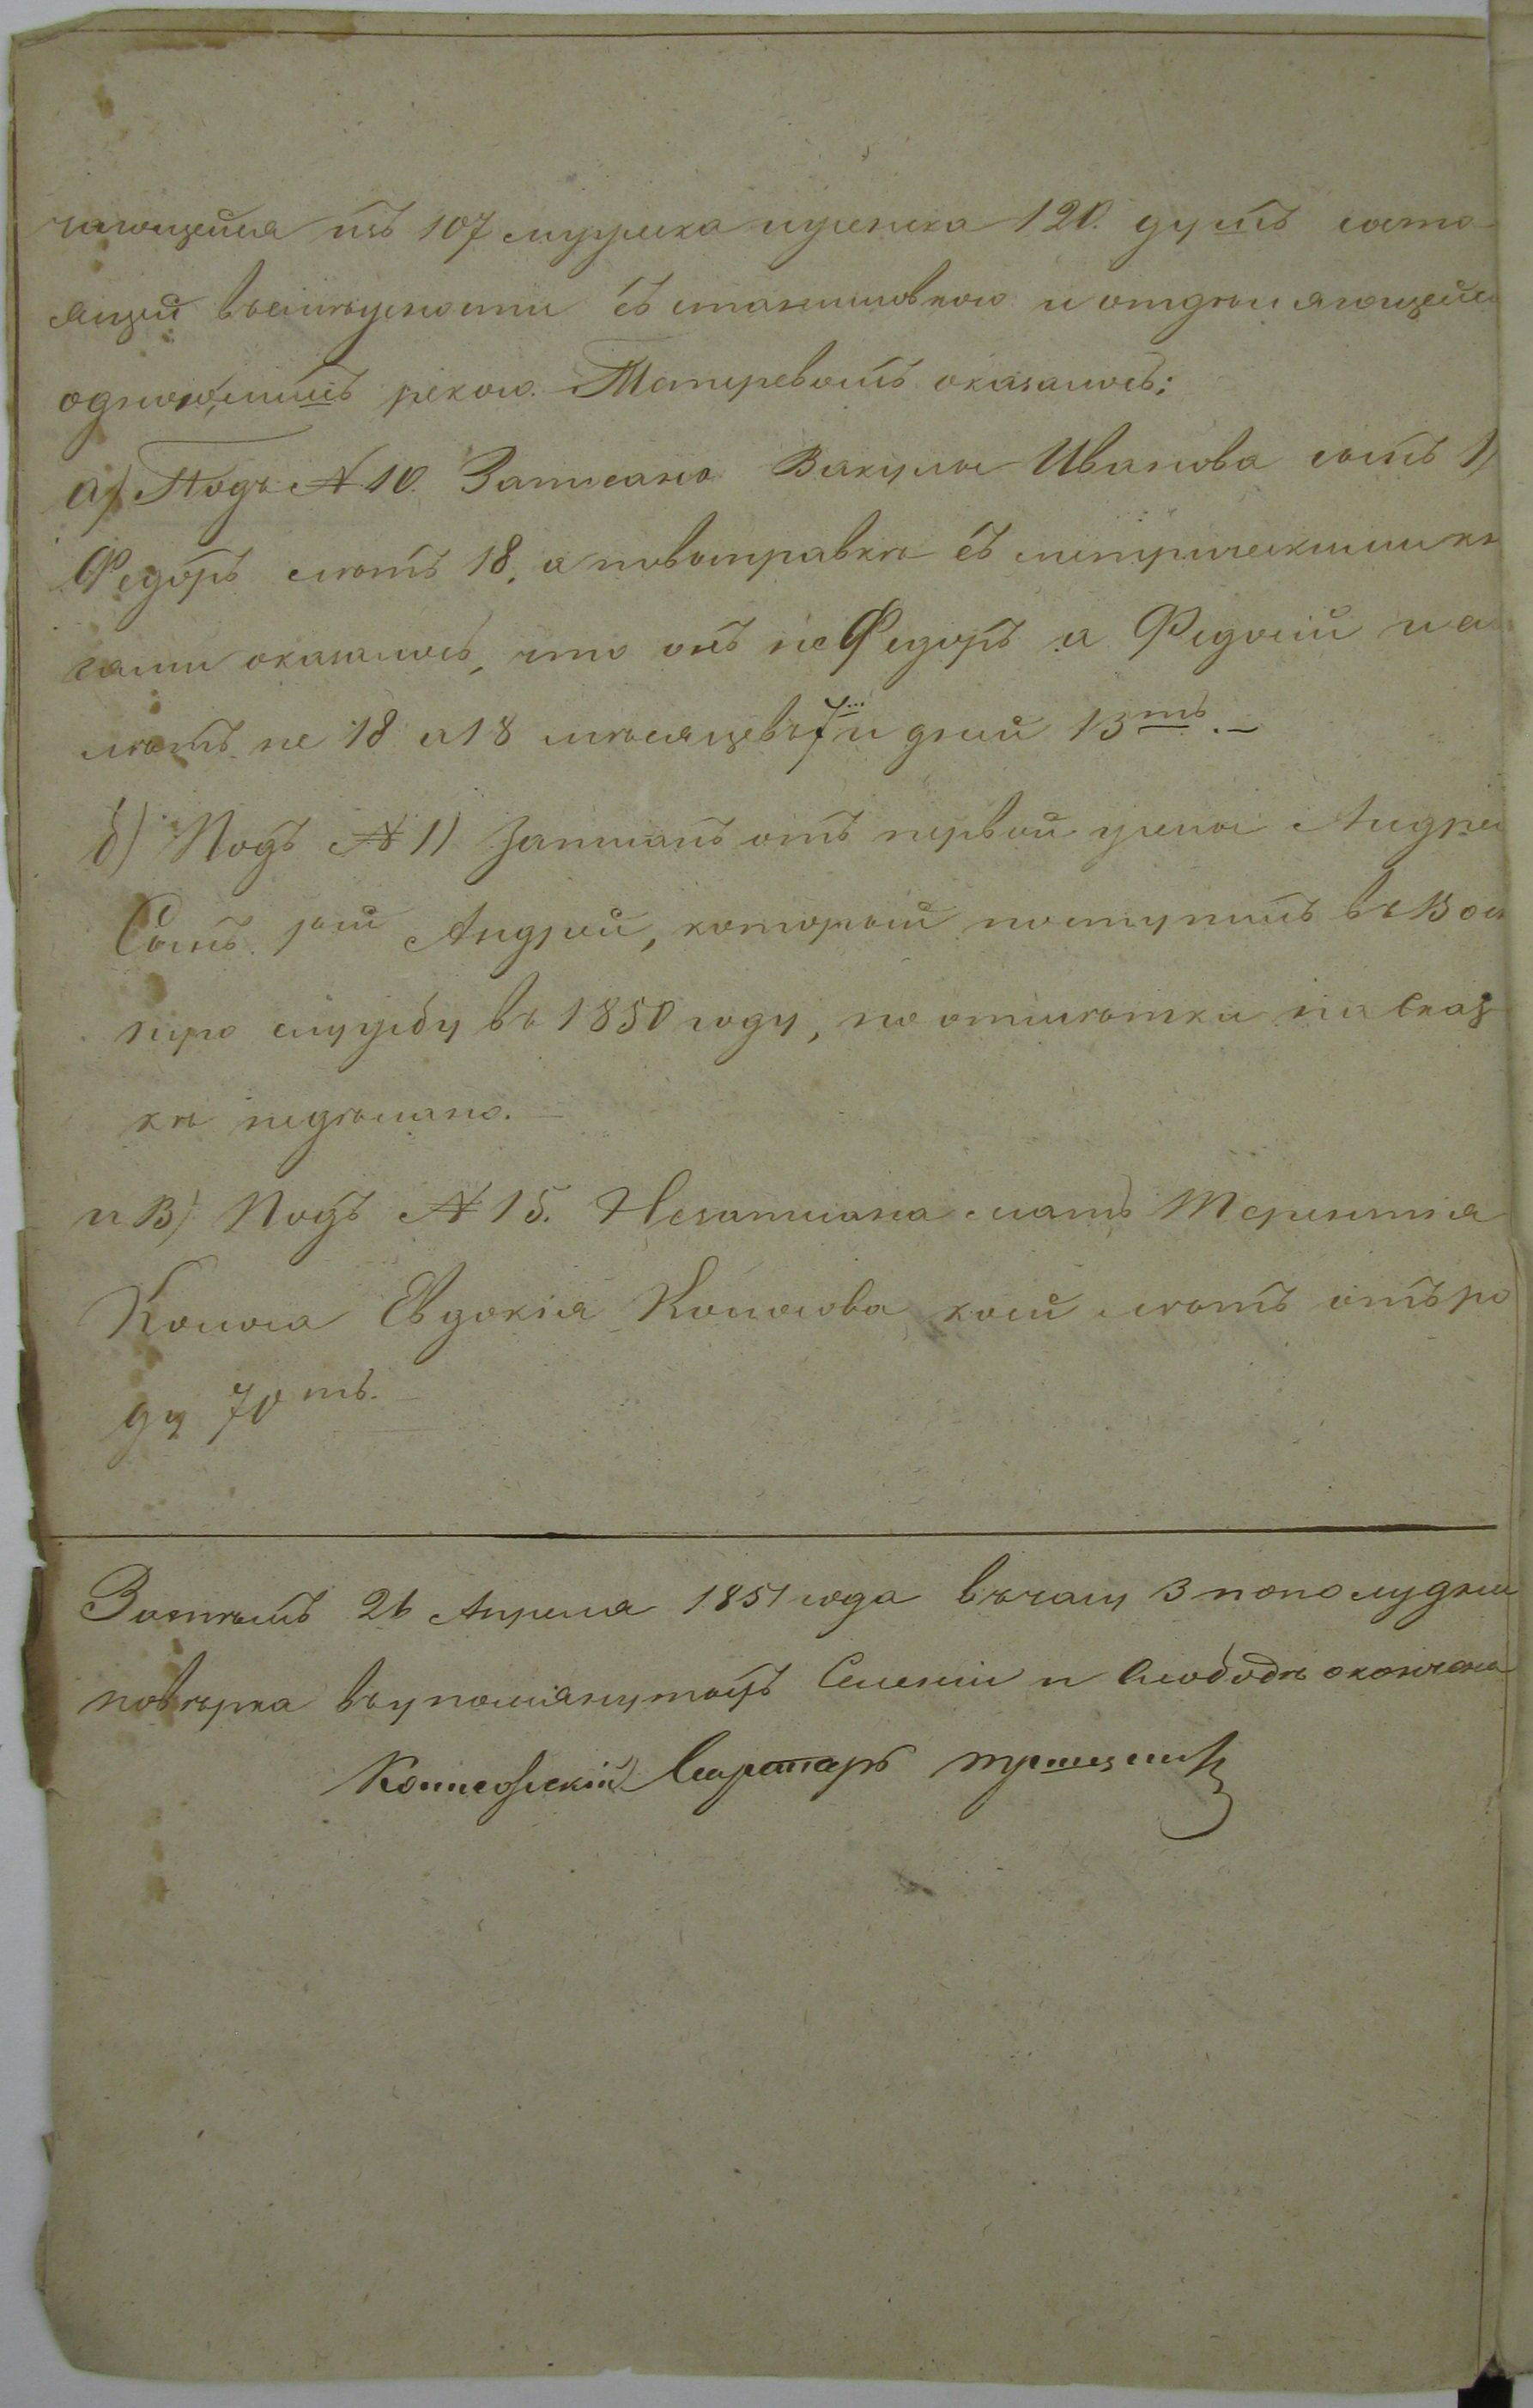 чающейся изъ 107 мужеска и женска 120. душъ состо-
ящей въ смѣжности съ таковою и отдѣляющейся
однимъ рекою. Тетеревомъ оказалось:
а) Подъ № 10. Записано Вакулы Иванова сынъ 1)
Федоръ лѣтъ 18, а по выправкѣ съ метрическими кн
гами оказалось, что онъ не Федоръ а Федосій и ем
лѣтъ не 18 а 18 мѣсяцевъ и дний 13ть.—
б) Подъ № 11 Записанъ отъ первой жены Андрея
Сынъ 1ый Андрей, который поступилъ въ Воен
ную службу въ 1850 году, но отмѣтки на Сказ
кѣ недѣлано.—
и В) Подъ № 15. Незаписана мать Терентія
Коноса Евдокія Коносова коей лѣтъ отъ ро
ду 70ть.—
Затѣмъ 26 Апреля 1851 года въ часу 3 пополудни
повѣрка въ упомянутыхъ Селеніи и Слободѣ окончена
Секретарь